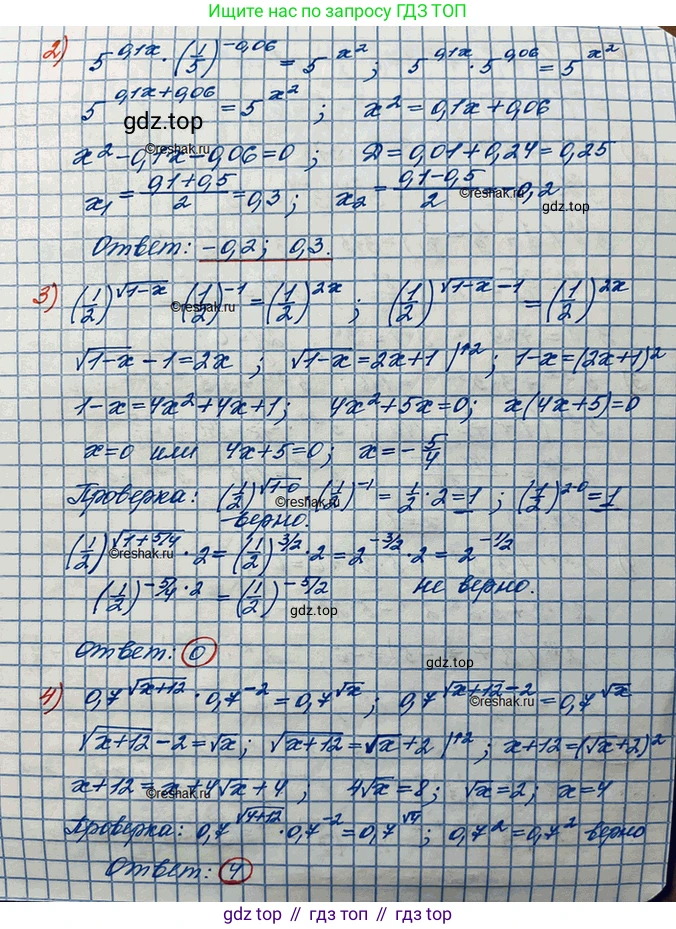 Ищите нас по запросу ГДЗ ТОП
2) 5^(0,1x) · (1/5)^(-0,06) = 5^(x²) ; 5^(0,1x) · 5^(0,06) = 5^(x²)
5^(0,1x+0,06) = 5^(x²) ; x² = 0,1x+0,06
gdz.top
x² - 0,1x - 0,06 = 0 ; D = 0,01 + 0,24 = 0,25
©reshak.ru
x₁ = (0,1+0,5)/2 = 0,3 ; x₂ = (0,1-0,5)/2 = -0,2
©reshak.ru
gdz.top
Ответ: -0,2; 0,3.
3) (1/2)^(√(1-x)) · (1/2)^(-1) = (1/2)^(2x) ; (1/2)^(√(1-x) - 1) = (1/2)^(2x)
©reshak.ru
√(1-x) - 1 = 2x ; √(1-x) = 2x+1 |↑2 ; 1-x = (2x+1)²
1-x = 4x² + 4x + 1; 4x² + 5x = 0; x(4x+5) = 0
x=0 или 4x+5=0; x = -5/4
Проверка: (1/2)^(√(1-0)) · (1/2)^(-1) = 1/2 · 2 = 1 ; (1/2)^(2·0) = 1
©reshak.ru
- верно.
(1/2)^(√(1+5/4)) · 2 = (1/2)^(3/2) · 2 = 2^(-3/2) · 2 = 2^(-1/2)
©reshak.ru
(1/2)^(-5/4 · 2) = (1/2)^(-5/2) не верно.
gdz.top
Ответ: 0
gdz.top
4) 0,7^(√(x+12)) · 0,7^(-2) = 0,7^(√x) ; 0,7^(√(x+12) - 2) = 0,7^(√x)
©reshak.ru
√(x+12) - 2 = √x ; √(x+12) = √x + 2 |↑2 ; x+12 = (√x+2)²
x+12 = x + 4√x + 4 ; 4√x = 8; √x = 2; x = 4
©reshak.ru
Проверка: 0,7^(√(4+12)) · 0,7^(-2) = 0,7^(√4) ; 0,7² = 0,7² верно
Ответ: 4
gdz.top // гдз топ // gdz.top